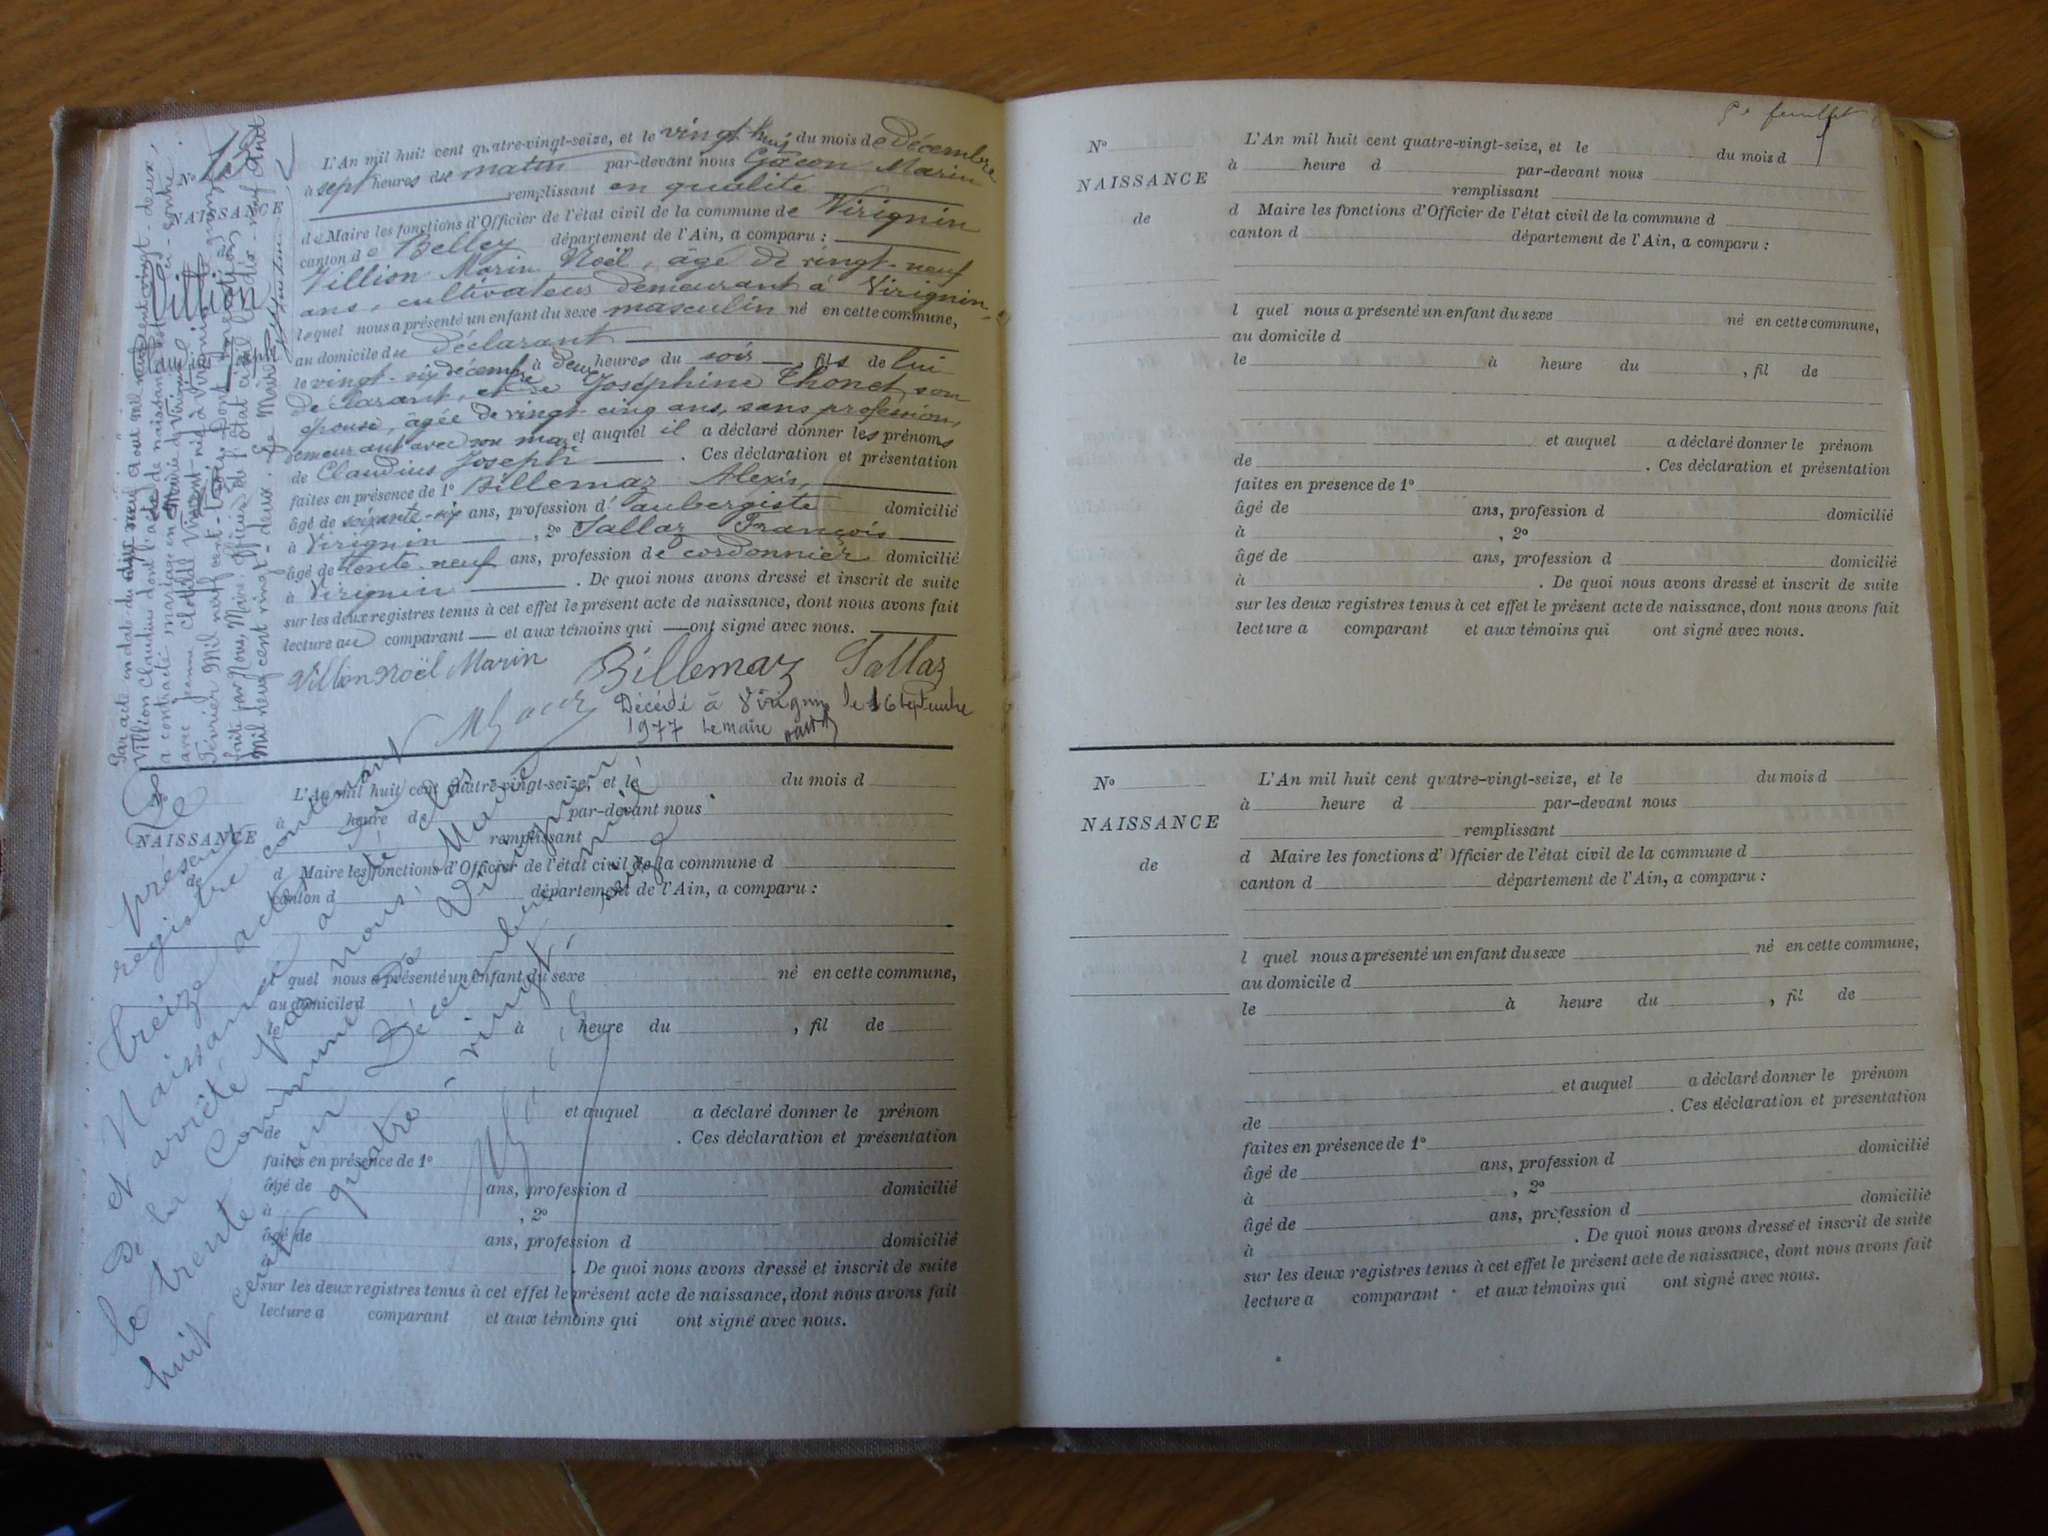 N° 13
NAISSANCE
de
Villion
Claudius
Joseph
L'An mil huit cent quatre-vingt-seize, et le vingt huit du mois de Décembre
à sept heures du matin par-devant nous Gacon Marin
remplissant en qualité
de Maire les fonctions d'Officier de l'état civil de la commune de Virignin
canton de Belley département de l'Ain, a comparu :
Villion Marin Noël, âgé de vingt-neuf
ans, cultivateur demeurant à Virignin,
lequel nous a présenté un enfant du sexe masculin né en cette commune,
au domicile du déclarant
le vingt-six décembre à deux heures du soir, fils de lui
déclarant, et de Joséphine Thonet, son
épouse, âgée de vingt cinq ans, sans profession,
demeurant avec son mari et auquel il a déclaré donner les prénoms
de Claudius Joseph . Ces déclaration et présentation
faites en présence de 1° Billemaz Alexis,
âgé de soixante-six ans, profession d'aubergiste domicilié
à Virignin , 2° Tallaz François
âgé de trente neuf ans, profession de cordonnier domicilié
à Virignin . De quoi nous avons dressé et inscrit de suite
sur les deux registres tenus à cet effet le présent acte de naissance, dont nous avons fait
lecture au comparant et aux témoins qui ont signé avec nous.
Villion Noël Marin Billemaz Tallaz
Décédé à Virignin le 16 Septembre
1977 Le maire
Par acte en date du neuf Août mil neuf cent vingt-deux,
Villion Claudius dont l'acte de naissance est ci-contre
a contracté mariage en Mairie de Virignin
avec Jeanne Clotilde
Février mil neuf cent
faite par Nous, Maire, officier de l'état civil
mil neuf cent vingt-deux. Le Maire
L'An mil huit cent quatre-vingt-seize, et le du mois d
à heure d par-devant nous
NAISSANCE
remplissant
de
d Maire les fonctions d'Officier de l'état civil de la commune d
canton d département de l'Ain, a comparu :
l quel nous a présenté un enfant du sexe né en cette commune,
au domicile d
le à heure du , fil de
et auquel a déclaré donner le prénom
de . Ces déclaration et présentation
faites en présence de 1°
âgé de ans, profession d domicilié
à , 2°
âgé de ans, profession d domicilié
à . De quoi nous avons dressé et inscrit de suite
sur les deux registres tenus à cet effet le présent acte de naissance, dont nous avons fait
lecture a comparant et aux témoins qui ont signé avec nous.
Le présent
registre contenant
treize actes de
Naissance a été clos
et arrêté par nous, Maire
de la Commune de Virignin
le trente un Décembre mil
huit cent quatre-vingt seize
feuillet
N°
NAISSANCE
de
L'An mil huit cent quatre-vingt-seize, et le du mois d
à heure d par-devant nous
remplissant
d Maire les fonctions d'Officier de l'état civil de la commune d
canton d département de l'Ain, a comparu :
l quel nous a présenté un enfant du sexe né en cette commune,
au domicile d
le à heure du , fil de
et auquel a déclaré donner le prénom
de . Ces déclaration et présentation
faites en présence de 1°
âgé de ans, profession d domicilié
à , 2°
âgé de ans, profession d domicilié
à . De quoi nous avons dressé et inscrit de suite
sur les deux registres tenus à cet effet le présent acte de naissance, dont nous avons fait
lecture a comparant et aux témoins qui ont signé avec nous.
N°
NAISSANCE
de
L'An mil huit cent quatre-vingt-seize, et le du mois d
à heure d par-devant nous
remplissant
d Maire les fonctions d'Officier de l'état civil de la commune d
canton d département de l'Ain, a comparu :
l quel nous a présenté un enfant du sexe né en cette commune,
au domicile d
le à heure du , fil de
et auquel a déclaré donner le prénom
de . Ces déclaration et présentation
faites en présence de 1°
âgé de ans, profession d domicilié
à , 2°
âgé de ans, profession d domicilié
à . De quoi nous avons dressé et inscrit de suite
sur les deux registres tenus à cet effet le présent acte de naissance, dont nous avons fait
lecture a comparant et aux témoins qui ont signé avec nous.